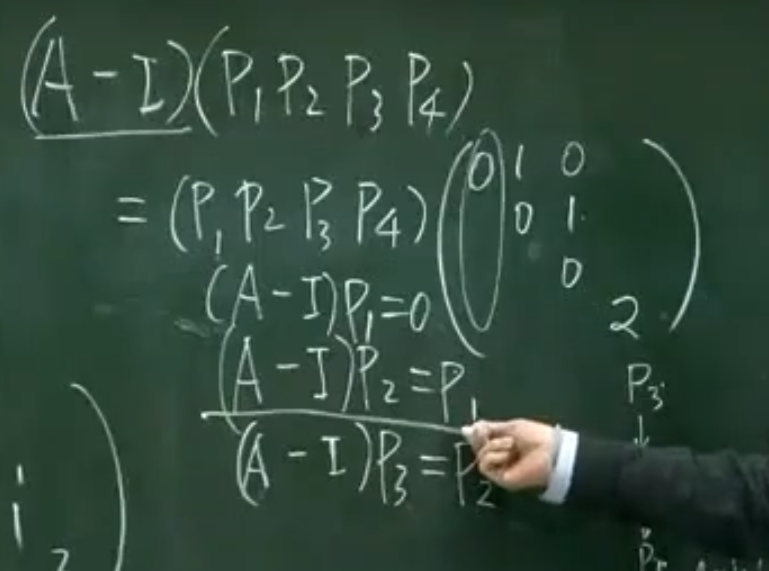 (A - I)(P₁ P₂ P₃ P₄)
= (P₁ P₂ P₃ P₄) ( 0 1 0
0 1
0
2 )
(A - I)P₁ = 0
(A - I)P₂ = P₁
(A - I)P₃ = P₂
P₃
↓
i
2